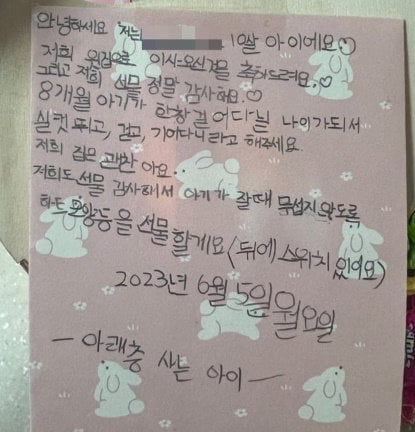 안녕하세요 저는 10살 아이에요♡
저희 윗집으로 이사오신걸 축하드려요.♡
그리고 저희 선물 정말 감사해요.♡
8개월 아기가 한창 걸어다닐 나이가 되서
실컷 뛰고, 걷고, 기어다니라고 해주세요.
저희 집은 괜찬아요.
저희도 선물 감사해서 아기가 잘때 무섭지 않도록
하트 모양등을 선물할게요 (뒤에 스위치 있어요)
2023년 6월 5일 월요일
— 아래층 사는 아이 —